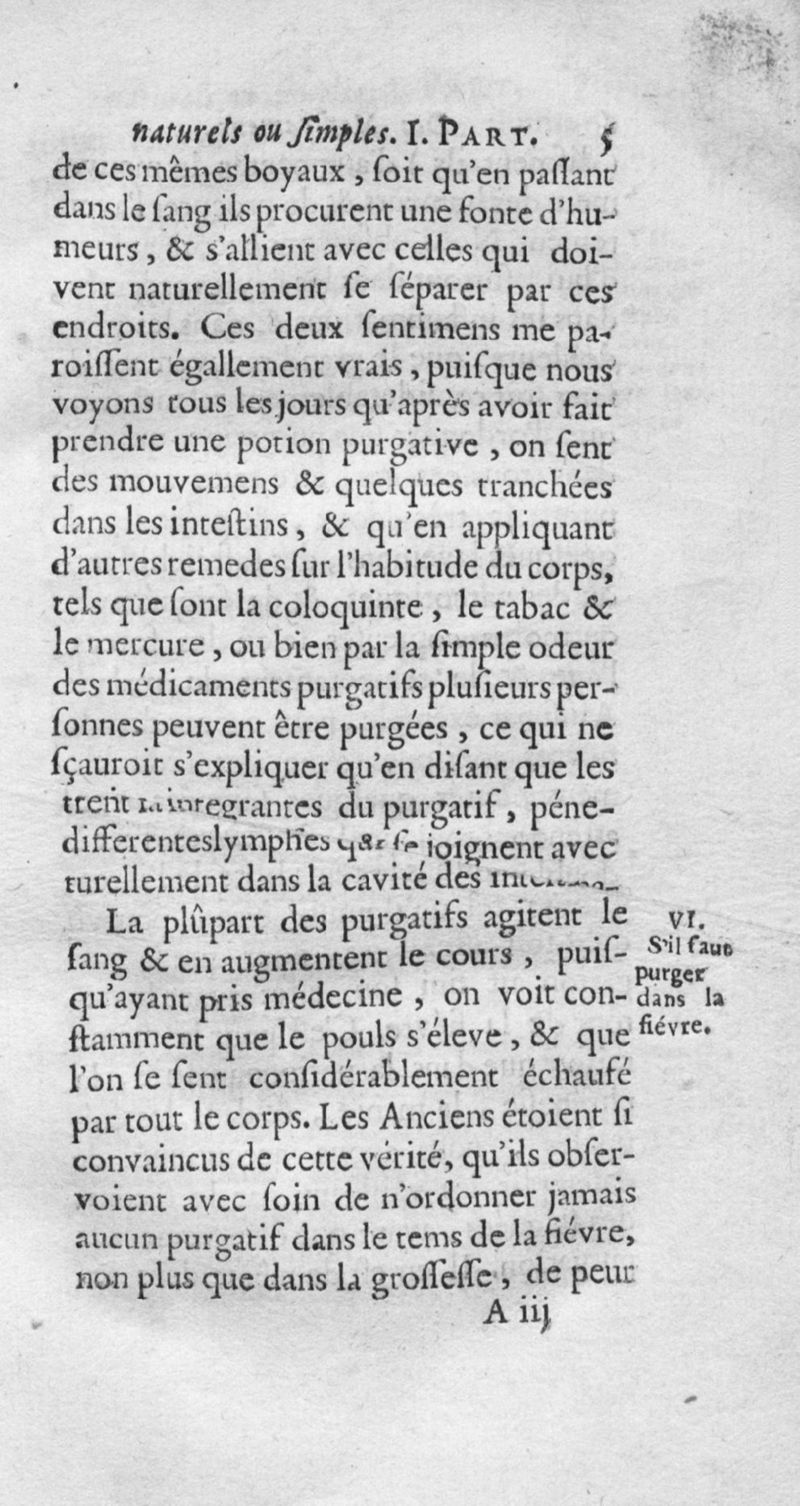 naturels ou ſimples. I. PART. 5
de ces mêmes boyaux, ſoit qu'en paſſant
dans le ſang ils procurent une fonte d'hu-
meurs, & s'allient avec celles qui doi-
vent naturellement ſe ſéparer par ces
endroits. Ces deux ſentimens me pa-
roiſſent égallement vrais, puiſque nous
voyons tous les jours qu'après avoir fait
prendre une potion purgative, on ſent
des mouvemens & quelques tranchées
dans les inteſtins, & qu'en appliquant
d'autres remedes ſur l'habitude du corps,
tels que ſont la coloquinte, le tabac &
le mercure, ou bien par la ſimple odeur
des médicaments purgatifs pluſieurs per-
ſonnes peuvent être purgées, ce qui ne
ſçauroit s'expliquer qu'en diſant que les
trent integrantes du purgatif, péne-
differentes lymphes joignent avec
turellement dans la cavité des
La plûpart des purgatifs agitent le
ſang & en augmentent le cours, puiſ-
qu'ayant pris médecine, on voit con-
ſtamment que le pouls s'éleve, & que
l'on ſe ſent conſidérablement échaufé
par tout le corps. Les Anciens étoient ſi
convaincus de cette vérité, qu'ils obſer-
voient avec ſoin de n'ordonner jamais
aucun purgatif dans le tems de la fiévre,
non plus que dans la groſſeſſe, de peur
A iij
VI.
S'il faut
purger
dans la
fiévre.